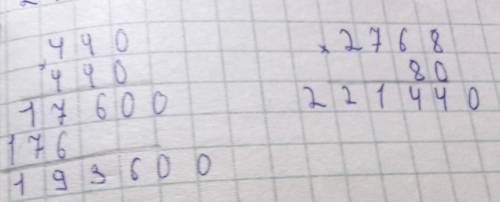 × 440
440
17600
176
193600
× 2768
80
221440